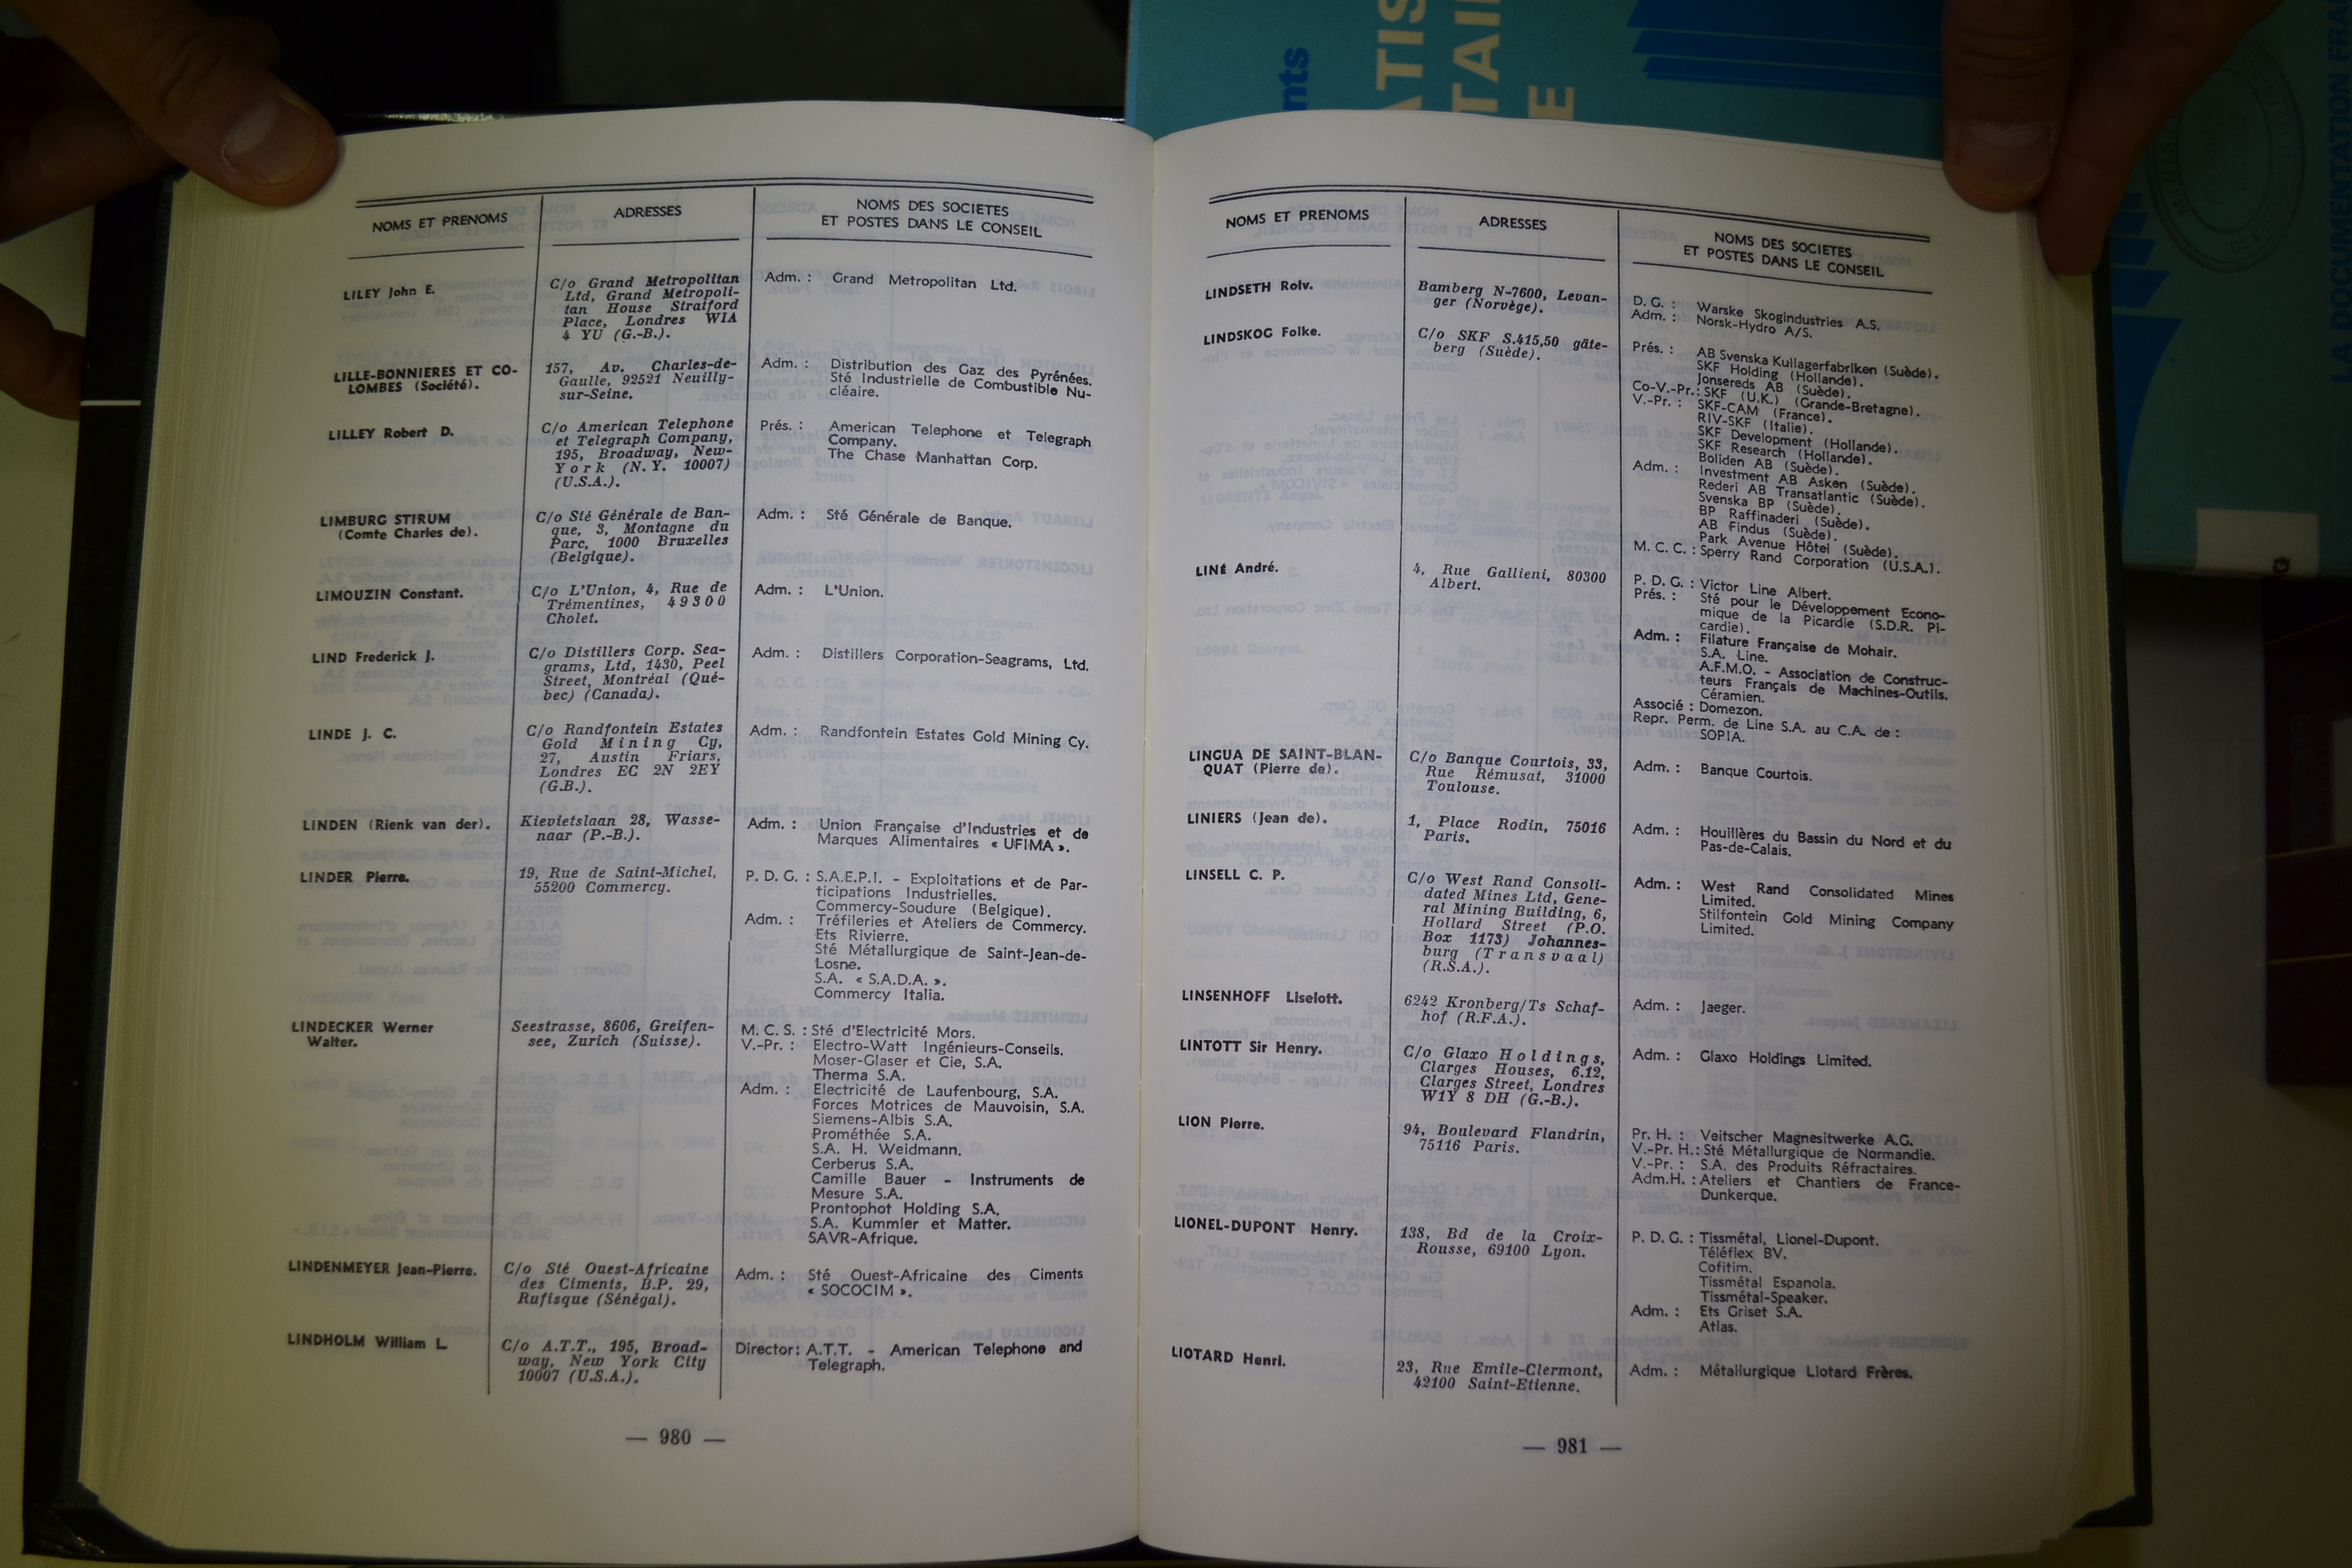 NOMS ET PRENOMS
ADRESSES
NOMS DES SOCIETES
ET POSTES DANS LE CONSEIL
LILEY John E.
C/o Grand Metropolitan
Ltd, Grand Metropoli-
tan House Stratford
Place, Londres WIA
4 YU (G.-B.).
Adm. : Grand Metropolitan Ltd.
LILLE-BONNIERES ET CO-
LOMBES (Société).
157, Av. Charles-de-
Gaulle, 92521 Neuilly-
sur-Seine.
Adm. : Distribution des Gaz des Pyrénées.
Sté Industrielle de Combustible Nu-
cléaire.
LILLEY Robert D.
C/o American Telephone
et Telegraph Company,
195, Broadway, New-
York (N.Y. 10007)
(U.S.A.).
Prés. : American Telephone et Telegraph
Company.
The Chase Manhattan Corp.
LIMBURG STIRUM
(Comte Charles de).
C/o Sté Générale de Ban-
que, 3, Montagne du
Parc, 1000 Bruxelles
(Belgique).
Adm. : Sté Générale de Banque.
LIMOUZIN Constant.
C/o L'Union, 4, Rue de
Trémentines, 49300
Cholet.
Adm. : L'Union.
LIND Frederick J.
C/o Distillers Corp. Sea-
grams, Ltd, 1430, Peel
Street, Montréal (Qué-
bec) (Canada).
Adm. : Distillers Corporation-Seagrams, Ltd.
LINDE J. C.
C/o Randfontein Estates
Gold Mining Cy,
27, Austin Friars,
Londres EC 2N 2EY
(G.B.).
Adm. : Randfontein Estates Gold Mining Cy.
LINDEN (Rienk van der).
Kievietslaan 28, Wasse-
naar (P.-B.).
Adm. : Union Française d'Industries et de
Marques Alimentaires « UFIMA ».
LINDER Pierre.
19, Rue de Saint-Michel,
55200 Commercy.
P. D. G. : S.A.E.P.I. - Exploitations et de Par-
ticipations Industrielles.
Commercy-Soudure (Belgique).
Adm. : Tréfileries et Ateliers de Commercy.
Ets Rivierre.
Sté Métallurgique de Saint-Jean-de-
Losne.
S.A. « S.A.D.A. ».
Commercy Italia.
LINDECKER Werner
Walter.
Seestrasse, 8606, Greifen-
see, Zurich (Suisse).
M. C. S. : Sté d'Electricité Mors.
V.-Pr. : Electro-Watt Ingénieurs-Conseils.
Moser-Glaser et Cie, S.A.
Therma S.A.
Adm. : Electricité de Laufenbourg, S.A.
Forces Motrices de Mauvoisin, S.A.
Siemens-Albis S.A.
Prométhée S.A.
S.A. H. Weidmann.
Cerberus S.A.
Camille Bauer - Instruments de
Mesure S.A.
Prontophot Holding S.A.
S.A. Kummler et Matter.
SAVR-Afrique.
LINDENMEYER Jean-Pierre.
C/o Sté Ouest-Africaine
des Ciments, B.P. 29,
Rufisque (Sénégal).
Adm. : Sté Ouest-Africaine des Ciments
« SOCOCIM ».
LINDHOLM William L.
C/o A.T.T., 195, Broad-
way, New York City
10007 (U.S.A.).
Director: A.T.T. - American Telephone and
Telegraph.
— 980 —
NOMS ET PRENOMS
ADRESSES
NOMS DES SOCIETES
ET POSTES DANS LE CONSEIL
LINDSETH Rolv.
Bamberg N-7600, Levan-
ger (Norvège).
D. G. : Warske Skogindustries A.S.
Adm. : Norsk-Hydro A/S.
LINDSKOG Folke.
C/o SKF S.415,50 gâte-
berg (Suède).
Prés. : AB Svenska Kullagerfabriken (Suède).
SKF Holding (Hollande).
Jonsereds AB (Suède).
Co-V.-Pr.: SKF (U.K.) (Grande-Bretagne).
V.-Pr. : SKF-CAM (France).
RIV-SKF (Italie).
SKF Development (Hollande).
SKF Research (Hollande).
Boliden AB (Suède).
Adm. : Investment AB Asken (Suède).
Rederi AB Transatlantic (Suède).
Svenska BP (Suède).
BP Raffinaderi (Suède).
AB Findus (Suède).
Park Avenue Hôtel (Suède).
M. C. C. : Sperry Rand Corporation (U.S.A.).
LINÉ André.
4, Rue Gallieni, 80300
Albert.
P. D. G. : Victor Line Albert.
Prés. : Sté pour le Développement Econo-
mique de la Picardie (S.D.R. Pi-
cardie).
Adm. : Filature Française de Mohair.
S.A. Line.
A.F.M.O. - Association de Construc-
teurs Français de Machines-Outils.
Céramien.
Associé : Domezon.
Repr. Perm. de Line S.A. au C.A. de :
SOPIA.
LINGUA DE SAINT-BLAN-
QUAT (Pierre de).
C/o Banque Courtois, 33,
Rue Rémusat, 31000
Toulouse.
Adm. : Banque Courtois.
LINIERS (Jean de).
1, Place Rodin, 75016
Paris.
Adm. : Houillères du Bassin du Nord et du
Pas-de-Calais.
LINSELL C. P.
C/o West Rand Consoli-
dated Mines Ltd, Gene-
ral Mining Building, 6,
Hollard Street (P.O.
Box 1173) Johannes-
burg (Transvaal)
(R.S.A.).
Adm. : West Rand Consolidated Mines
Limited.
Stilfontein Gold Mining Company
Limited.
LINSENHOFF Liselott.
6242 Kronberg/Ts Schaf-
hof (R.F.A.).
Adm. : Jaeger.
LINTOTT Sir Henry.
C/o Glaxo Holdings,
Clarges Houses, 6.12,
Clarges Street, Londres
W1Y 8 DH (G.-B.).
Adm. : Glaxo Holdings Limited.
LION Pierre.
94, Boulevard Flandrin,
75116 Paris.
Pr. H. : Veitscher Magnesitwerke A.G.
V.-Pr. H.: Sté Métallurgique de Normandie.
V.-Pr. : S.A. des Produits Réfractaires.
Adm.H. : Ateliers et Chantiers de France-
Dunkerque.
LIONEL-DUPONT Henry.
138, Bd de la Croix-
Rousse, 69100 Lyon.
P. D. G. : Tissmétal, Lionel-Dupont.
Téléflex BV.
Cofitim.
Tissmétal Espanola.
Tissmétal-Speaker.
Adm. : Ets Griset S.A.
Atlas.
LIOTARD Henri.
23, Rue Emile-Clermont,
42100 Saint-Etienne.
Adm. : Métallurgique Liotard Frères.
— 981 —
LA DOCUMENTATION FRA